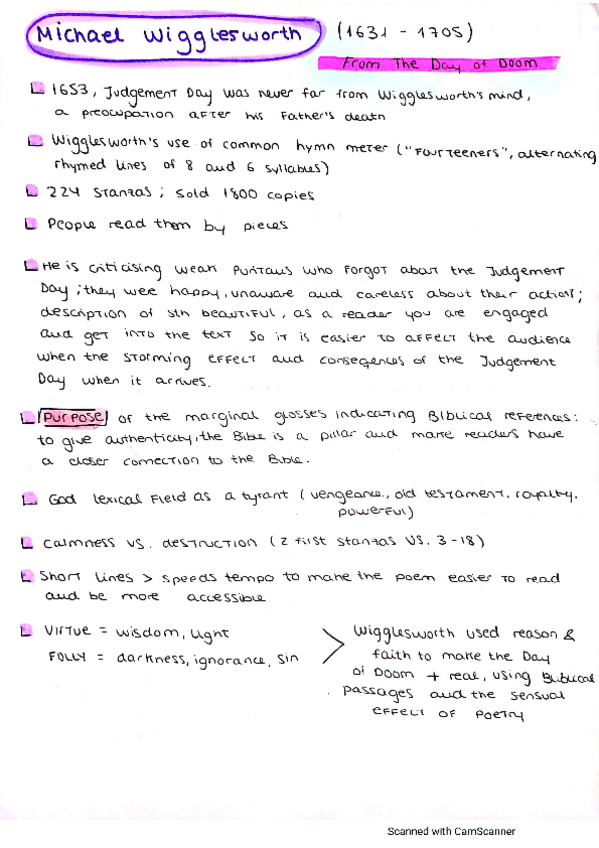 Michael Wigglesworth (1631 - 1705)
From The Day of Doom
1653, Judgement Day was never far from Wigglesworth's mind,
a preocupation after his Father's death
Wigglesworth's use of common hymn meter ("Fourteeners", alternating
rhymed lines of 8 and 6 syllables)
224 stanzas; sold 1800 copies
People read them by pieces
He is criticising weak Puritans who forgot about the Judgement
Day; they wee happy, unaware and careless about their actions;
description of sth beautiful, as a reader you are engaged
and get into the text so it is easier to affect the audience
when the storming effect and conseqences of the Judgement
Day when it arrives.
Purpose of the marginal glosses indicating Biblical references:
to give authenticity, the Bible is a pillar and make readers have
a closer connection to the Bible.
God lexical field as a tyrant (vengeance, old testament, royalty,
powerful)
Calmness vs. destruction (2 first stanzas vs. 3-18)
Short lines > speeds tempo to make the poem easier to read
and be more accessible
Virtue = wisdom, light
Folly = darkness, ignorance, sin
> Wigglesworth used reason &
faith to make the Day
of Doom + real, using Biblical
passages and the sensual
effect of Poetry
Scanned with CamScanner